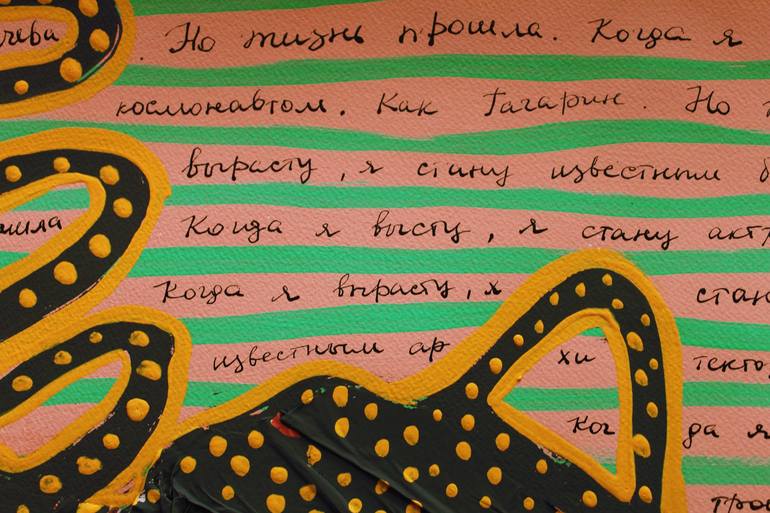 чева . Но жизнь прошла. Когда я
космонавтом. Как Гагарин. Но
вырасту, я стану известным б
шла Когда я высту, я стану акт
Когда я вырасту, х стан
известным ар хи текто
Ког да я